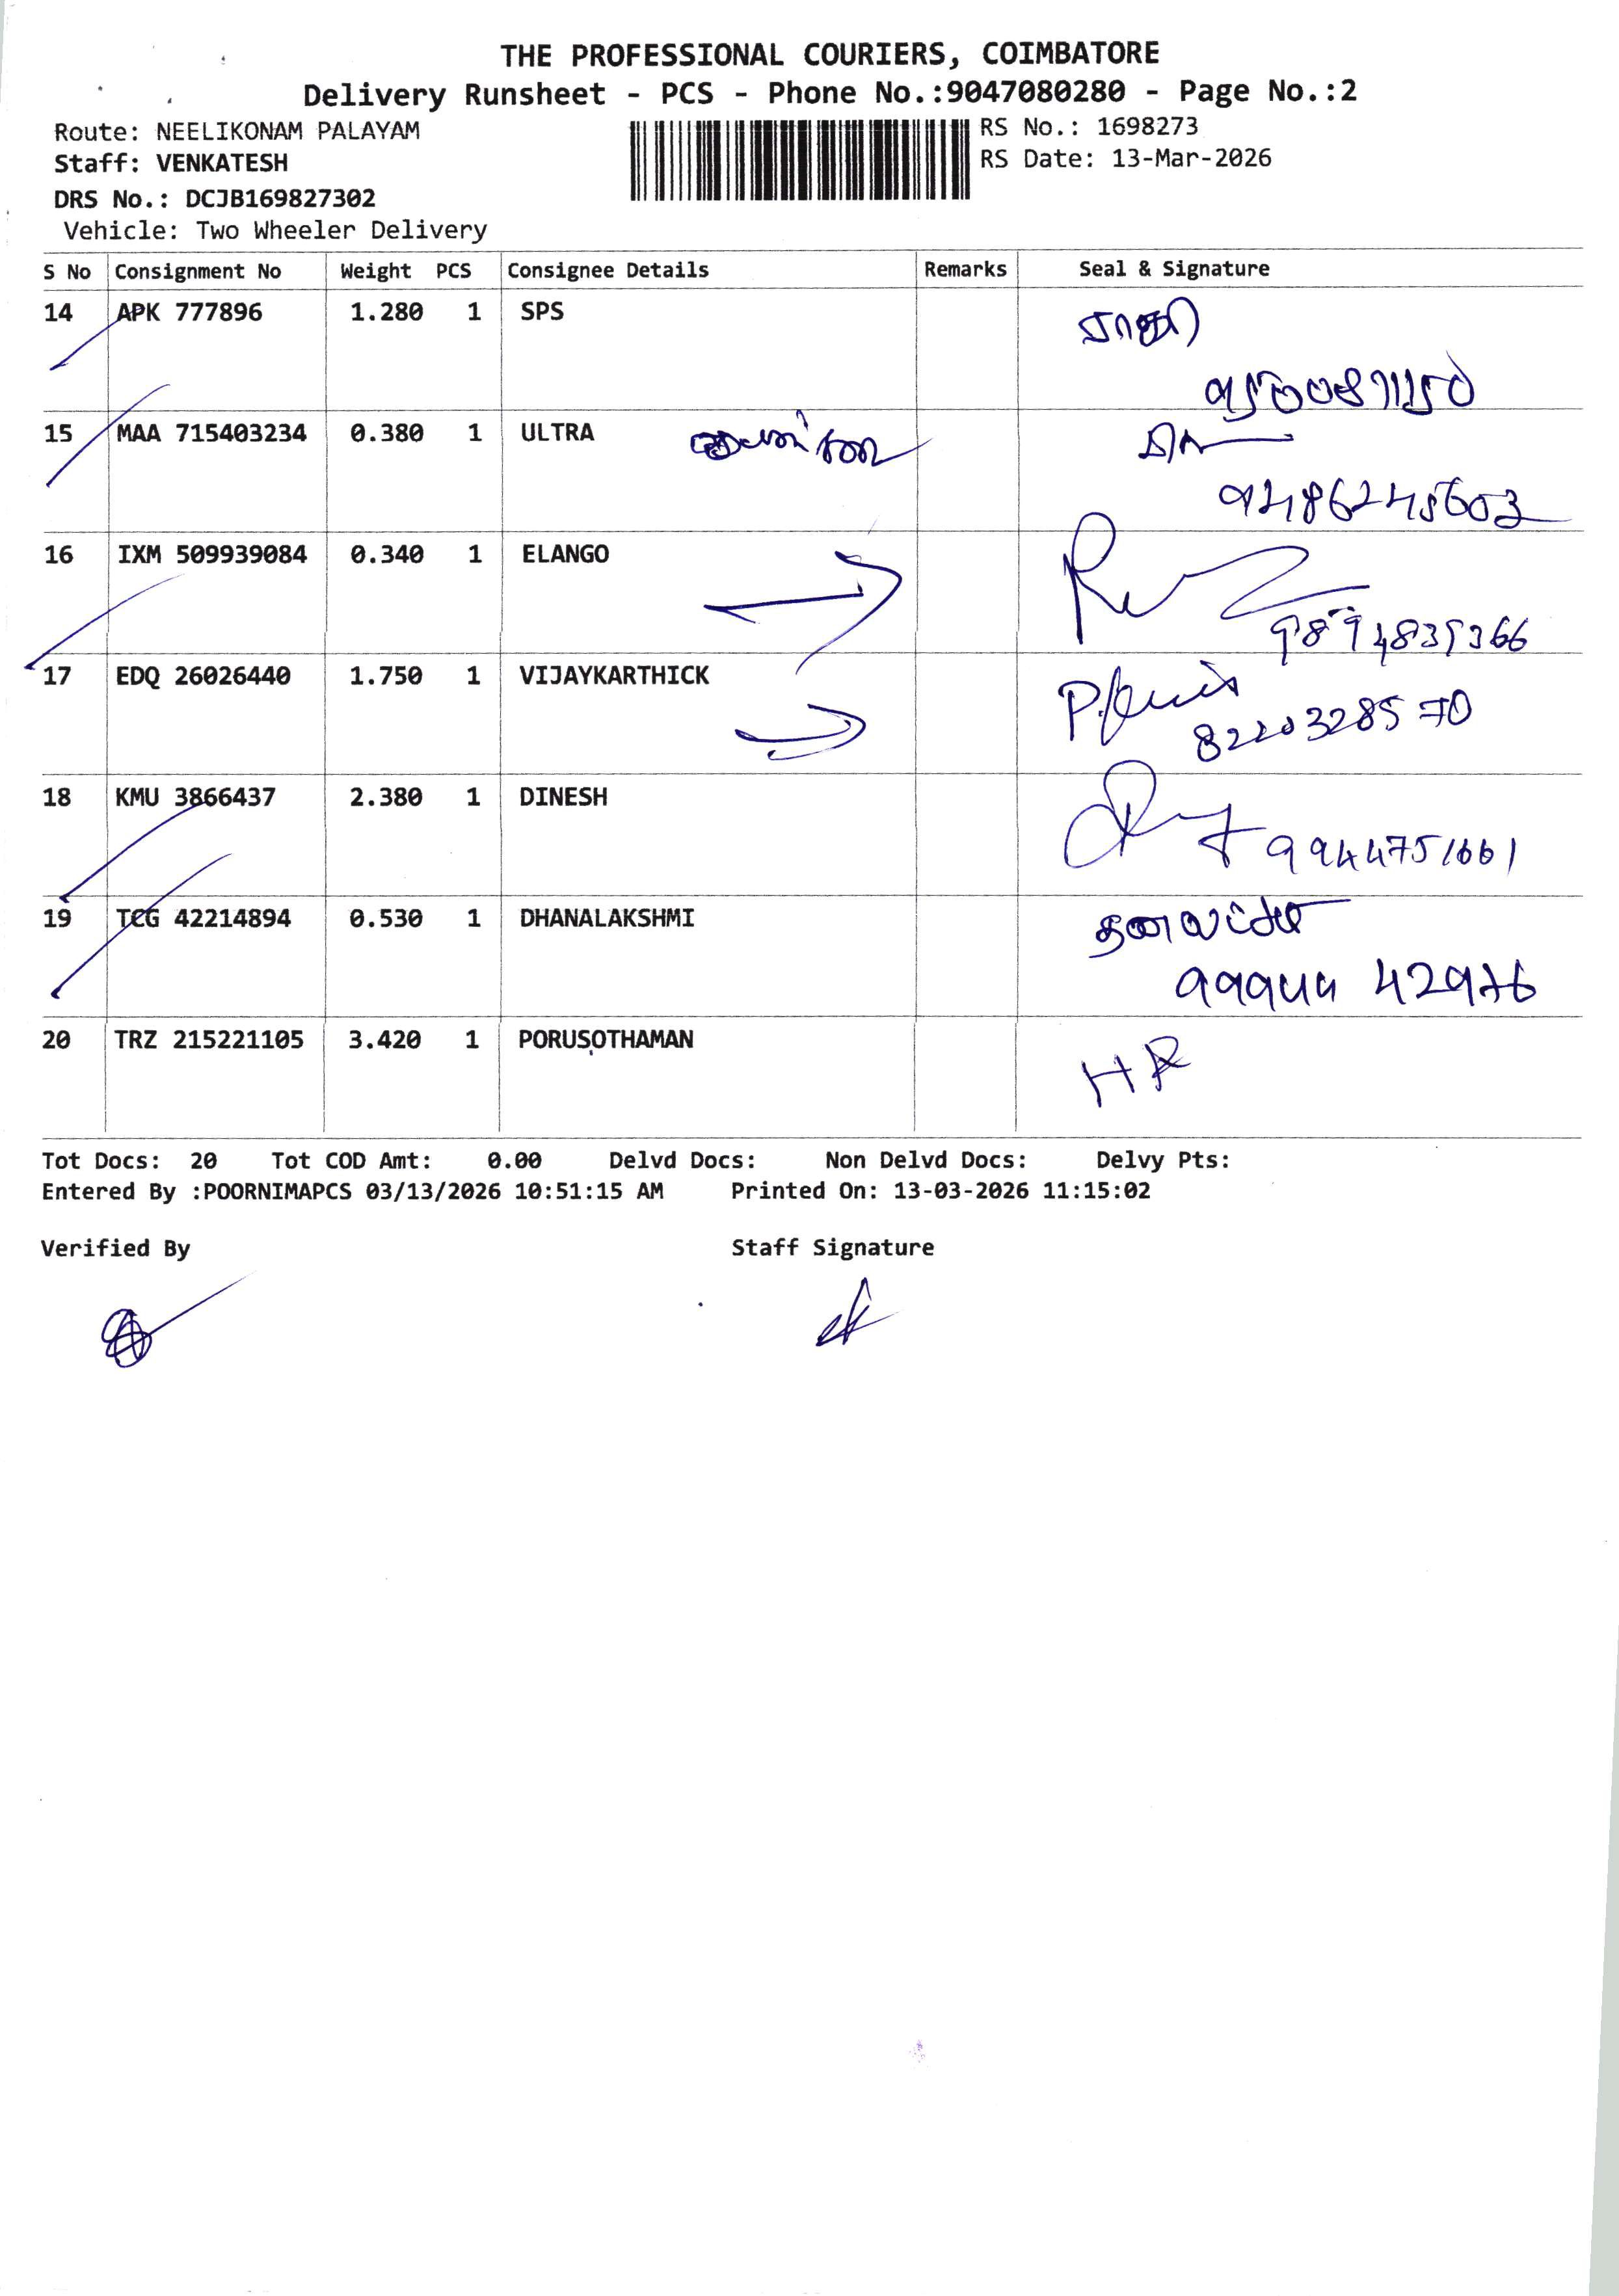 THE PROFESSIONAL COURIERS, COIMBATORE
Delivery Runsheet - PCS - Phone No.:9047080280 - Page No.:2
Route: NEELIKONAM PALAYAM
RS No.: 1698273
Staff: VENKATESH
RS Date: 13-Mar-2026
DRS No.: DCJB169827302
Vehicle: Two Wheeler Delivery
S No Consignment No Weight PCS Consignee Details Remarks Seal & Signature
14 APK 777896 1.280 1 SPS
15 MAA 715403234 0.380 1 ULTRA
9486245603
16 IXM 509939084 0.340 1 ELANGO
17 EDQ 26026440 1.750 1 VIJAYKARTHICK
8220328570
18 KMU 3866437 2.380 1 DINESH
9944751661
19 TCG 42214894 0.530 1 DHANALAKSHMI
99944 42976
20 TRZ 215221105 3.420 1 PORUSOTHAMAN
HR
Tot Docs: 20 Tot COD Amt: 0.00 Delvd Docs: Non Delvd Docs: Delvy Pts:
Entered By :POORNIMAPCS 03/13/2026 10:51:15 AM Printed On: 13-03-2026 11:15:02
Verified By Staff Signature